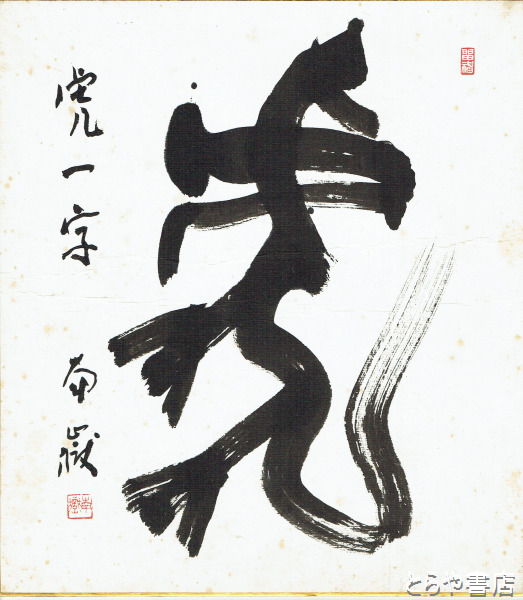 虎
虎一字
南嶽
とらや書店